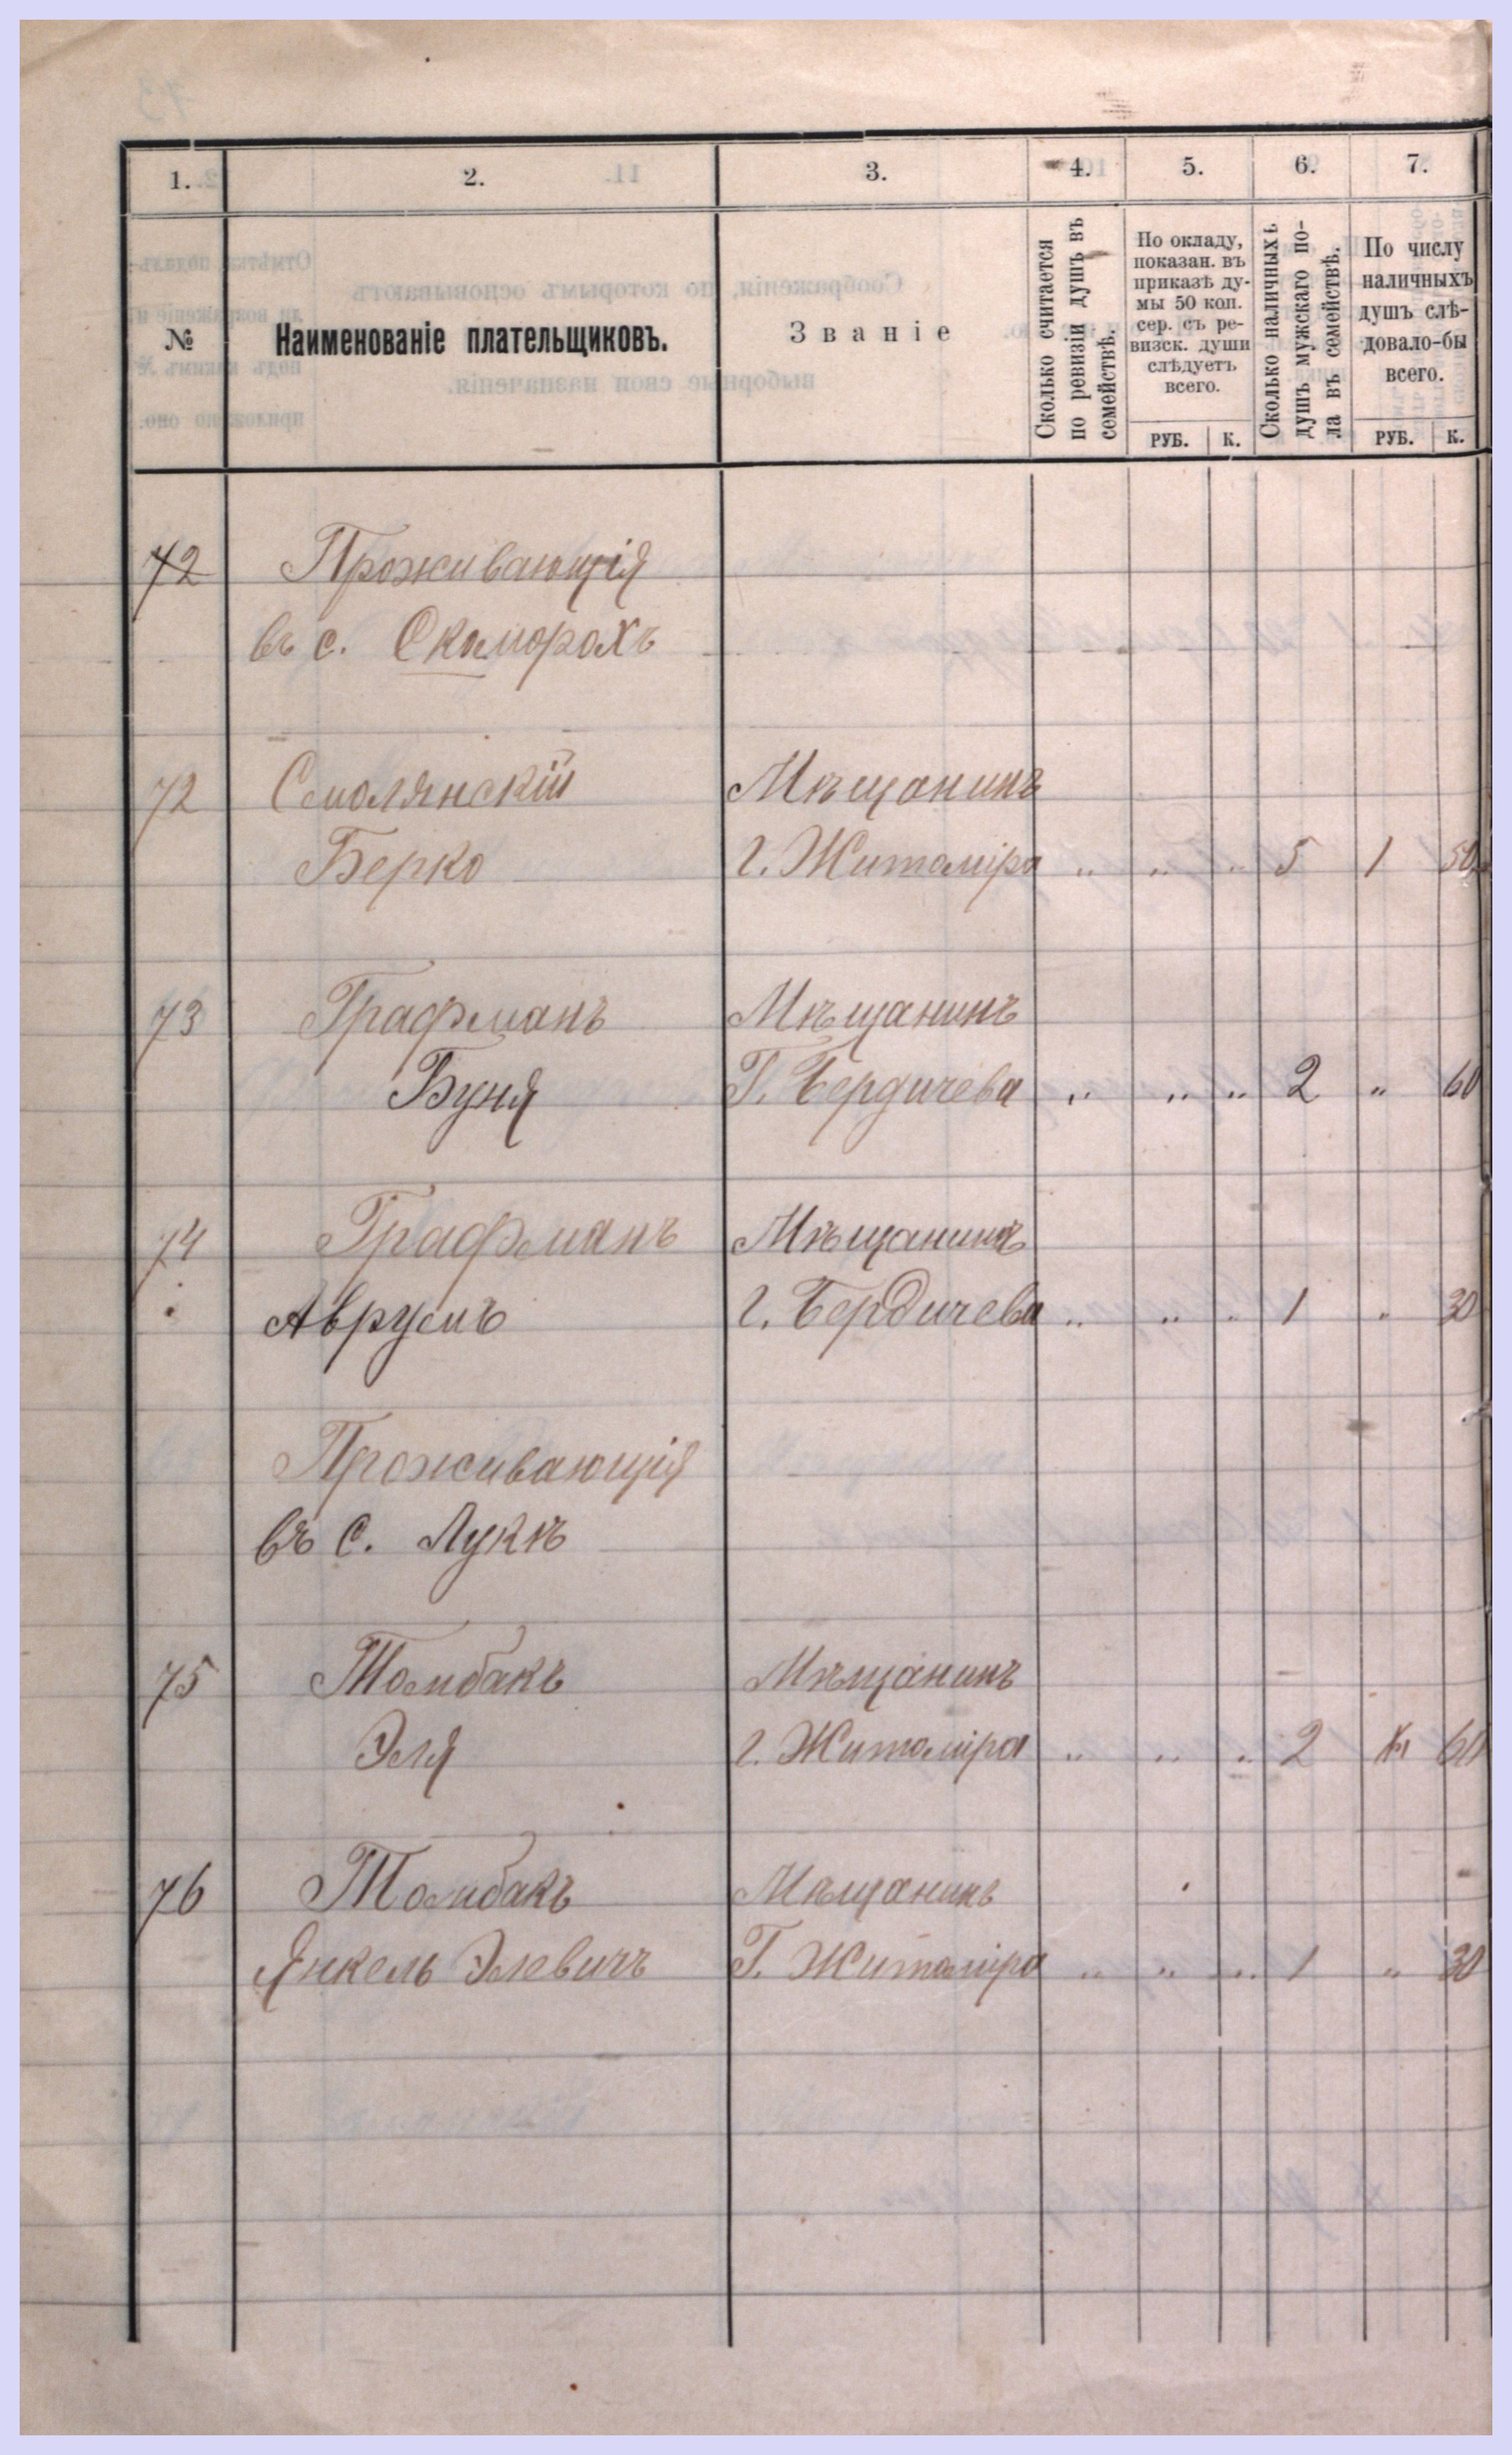 1. 2. 3. 4. 5. 6. 7.
№
Наименованіе плательщиковъ.
Званіе
Сколько считается
по ревизіи душъ въ
семействѣ.
По окладу,
показан. въ
приказѣ ду-
мы 50 коп.
сер. съ ре-
визск. души
слѣдуетъ
всего.
РУБ. К.
Сколько наличныхъ
душъ мужскаго по-
ла въ семействѣ.
По числу
наличныхъ
душъ слѣ-
довало-бы
всего.
РУБ. К.
72 Проживающія
въ с. Скаморохъ
72 Смолянскій Мѣщанинъ
Берко г. Житоміра „ „ „ 5 1 50
73 Графманъ Мѣщанинъ
Буня Г. Бердичева „ „ „ 2 „ 60
74 Графманъ Мѣщанинъ
Аврумъ г. Бердичева „ „ „ 1 „ 30
Проживающія
въ с. Лукѣ
75 Томбакъ Мѣщанинъ
Эля г. Житоміра „ „ „ 2 60
76 Томбакъ Мѣщанинъ
Янкель Элевичъ Г. Житоміра „ „ „ 1 „ 30